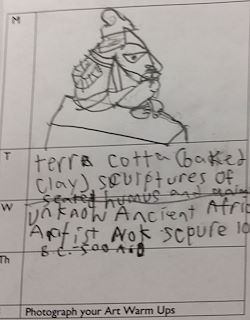 M
T terra cotta (baked
clay) sculptures of
seated humus and anim
W unknow Ancient Afric
Artist Nok scpure 10
B.C.-500 A.D
Th
Photograph your Art Warm Ups